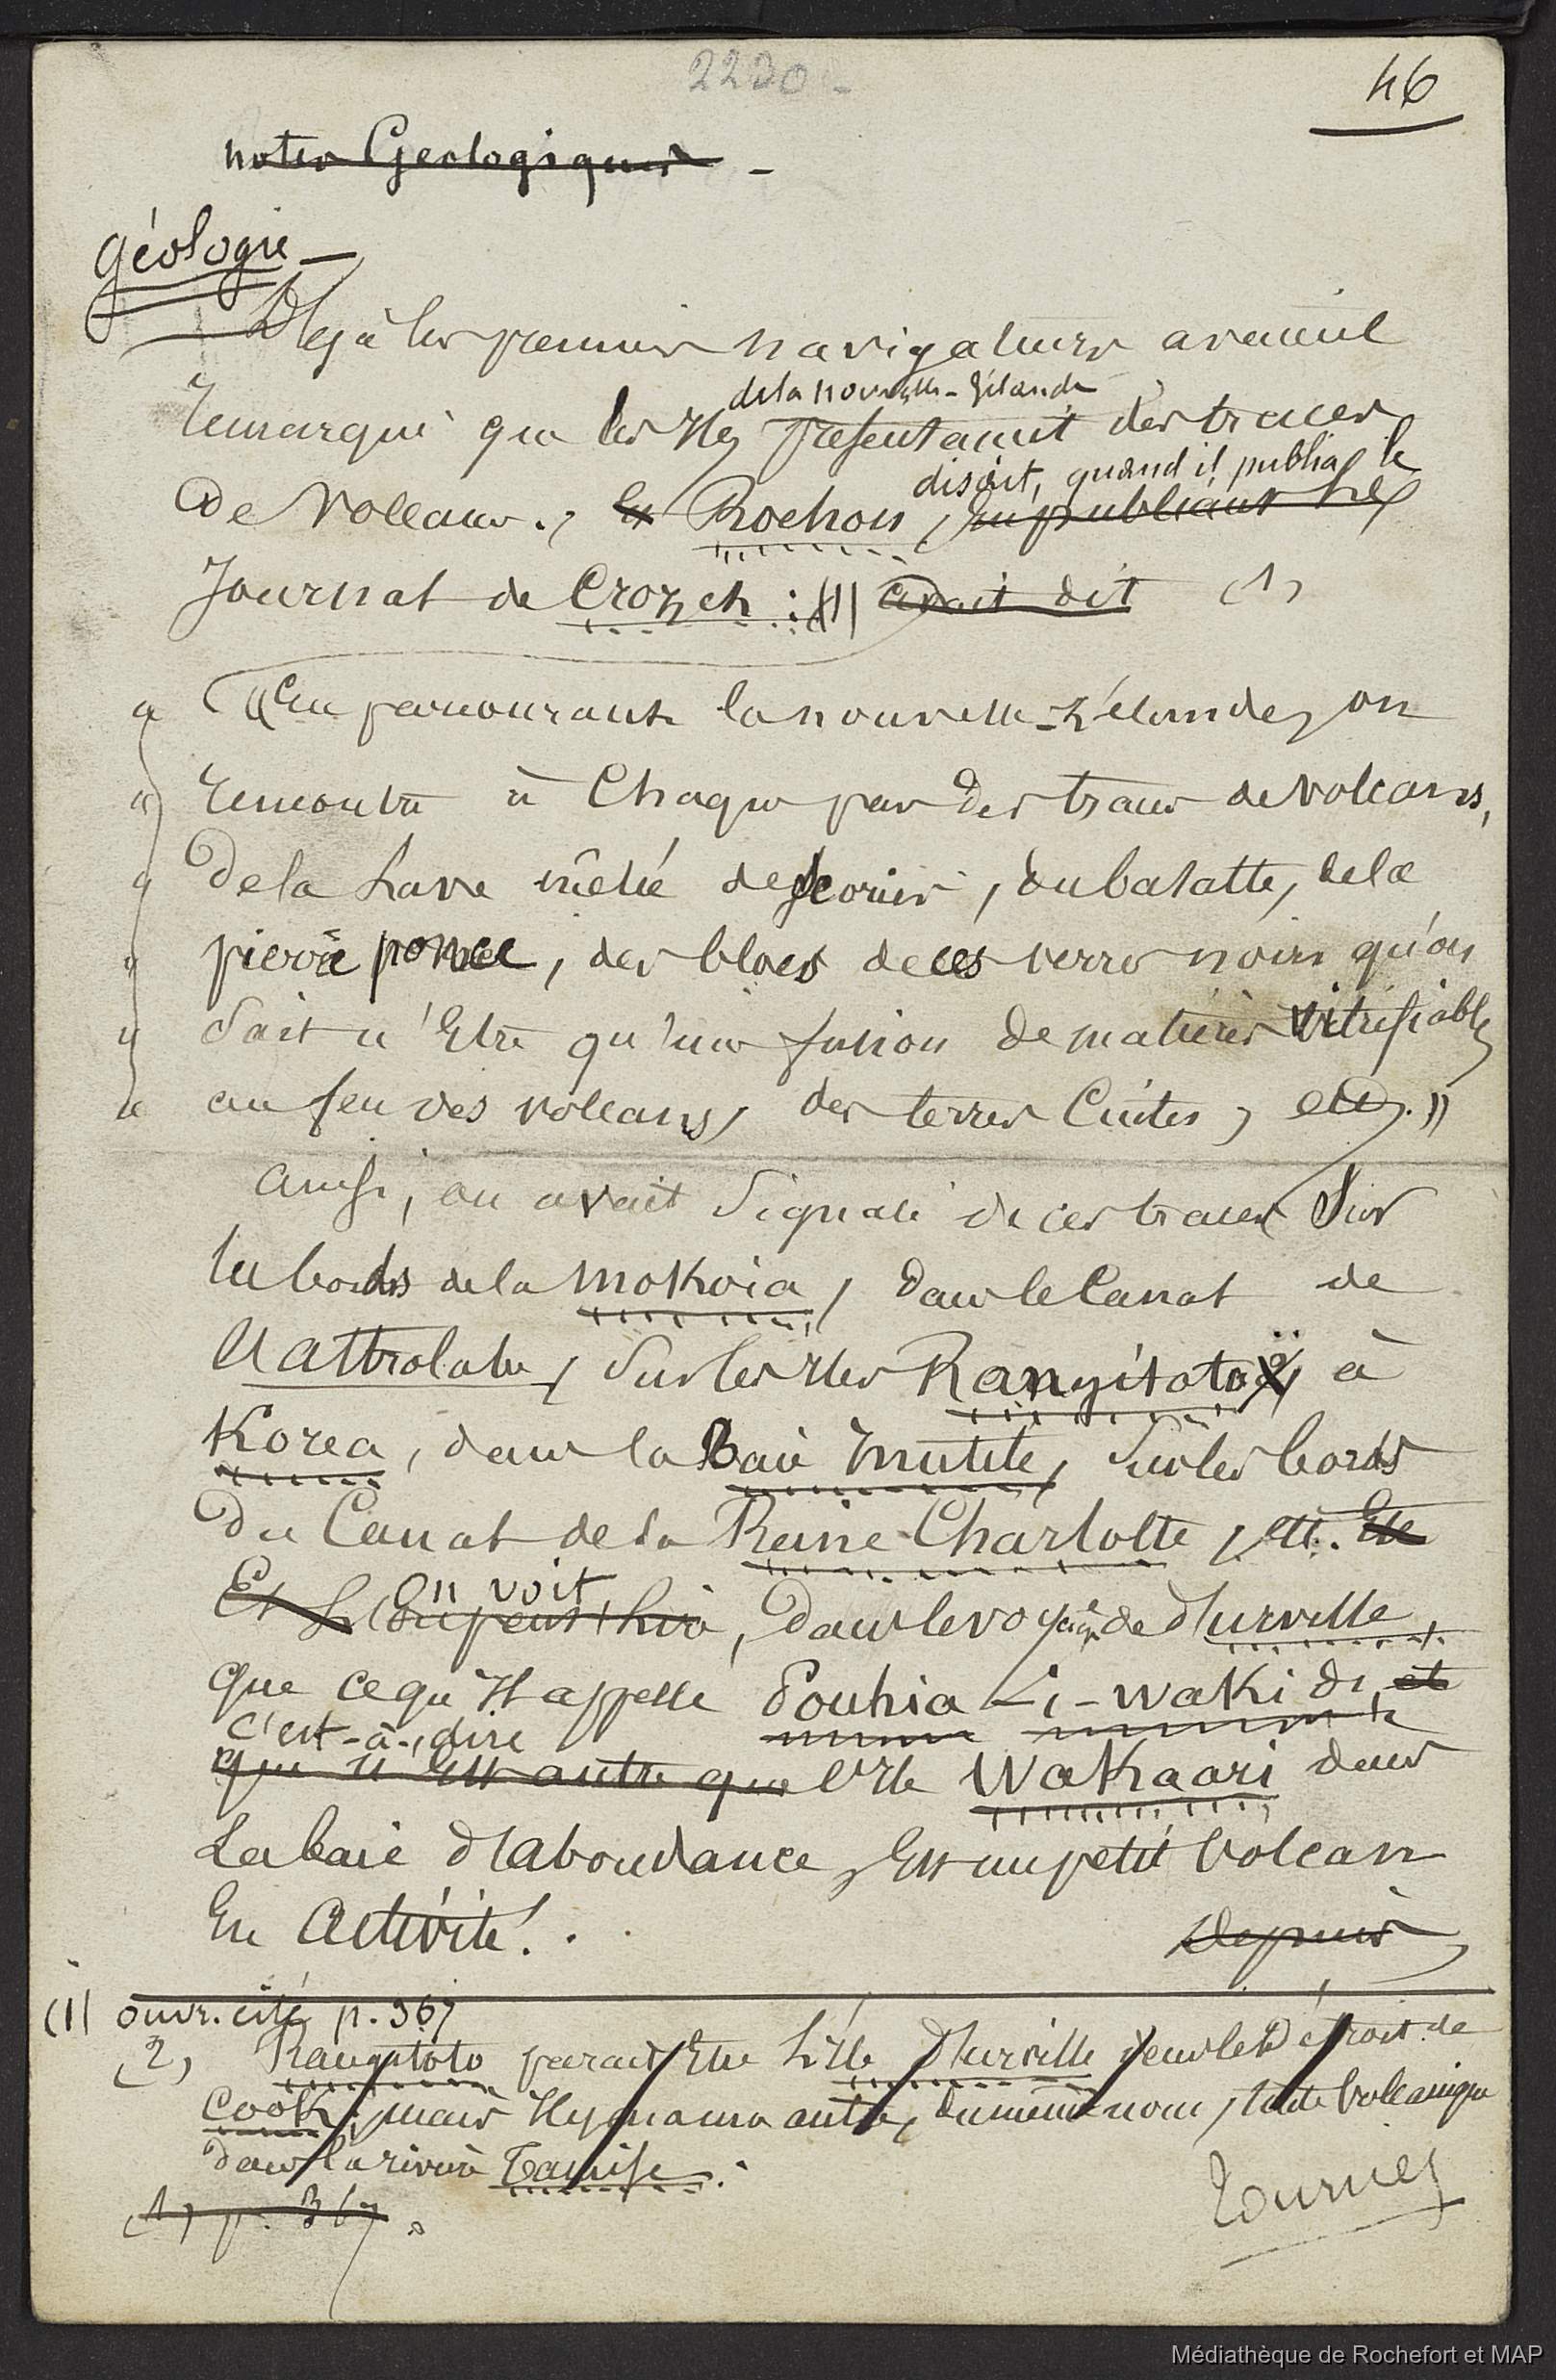 2230 -
46
notes Geologiques -
géologie -
Dejà les premiers navigateurs avaient
de la nouvelle-Zélande
remarqué que les Iles présentaient des traces
disait, quand il publia le
de volcans ; et Rochon, en publiant le
Journal de Crozet : (1) avait dit (1)
« « En parcourant la nouvelle-Zélande, on
« rencontre à chaque pas des traces de volcans,
« de la Lave mêlée de scories, du basalte, de la
« pierre ponce, des blocs de ces verres noirs qu'on
« sait n'Etre qu'une fusion de matières vitrifiables
« au feu des volcans, des terres Cuites, etc. »
Ainsi, on avait signalé de ces traces sur
les bords de la Mokoia, dans le Canal de
l'Astrolabe, sur les Iles Rangitoto (2), à
Korea, dans la Baie Inutile, sur les bords
du Canal de la Reine Charlotte, etc. Etc
On voit
Et L'on peut lire, dans le voyage de d'Urville,
que ce qu'Il appelle Pouhia-i-wakidi, et
c'est-à-dire
qui n'Est autre que l'Ile Wakaari dans
La baie d'Abondance, Est un petit volcan
En Activité. .
Depuis
(1) ouvr. cité p. 367
(2) Rangitoto parait Etre L'Ile d'Urville dans le Détroit de
Cook ; mais Il y en a une autre, du même nom, toute volcanique
dans la rivière Tamise.
(1) p. 367.
Tournez
Médiathèque de Rochefort et MAP